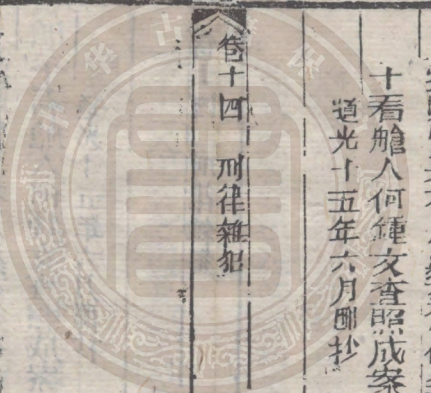 十看艙人何鍾文查照成案
道光十五年六月邸抄
卷十四 刑律雜犯